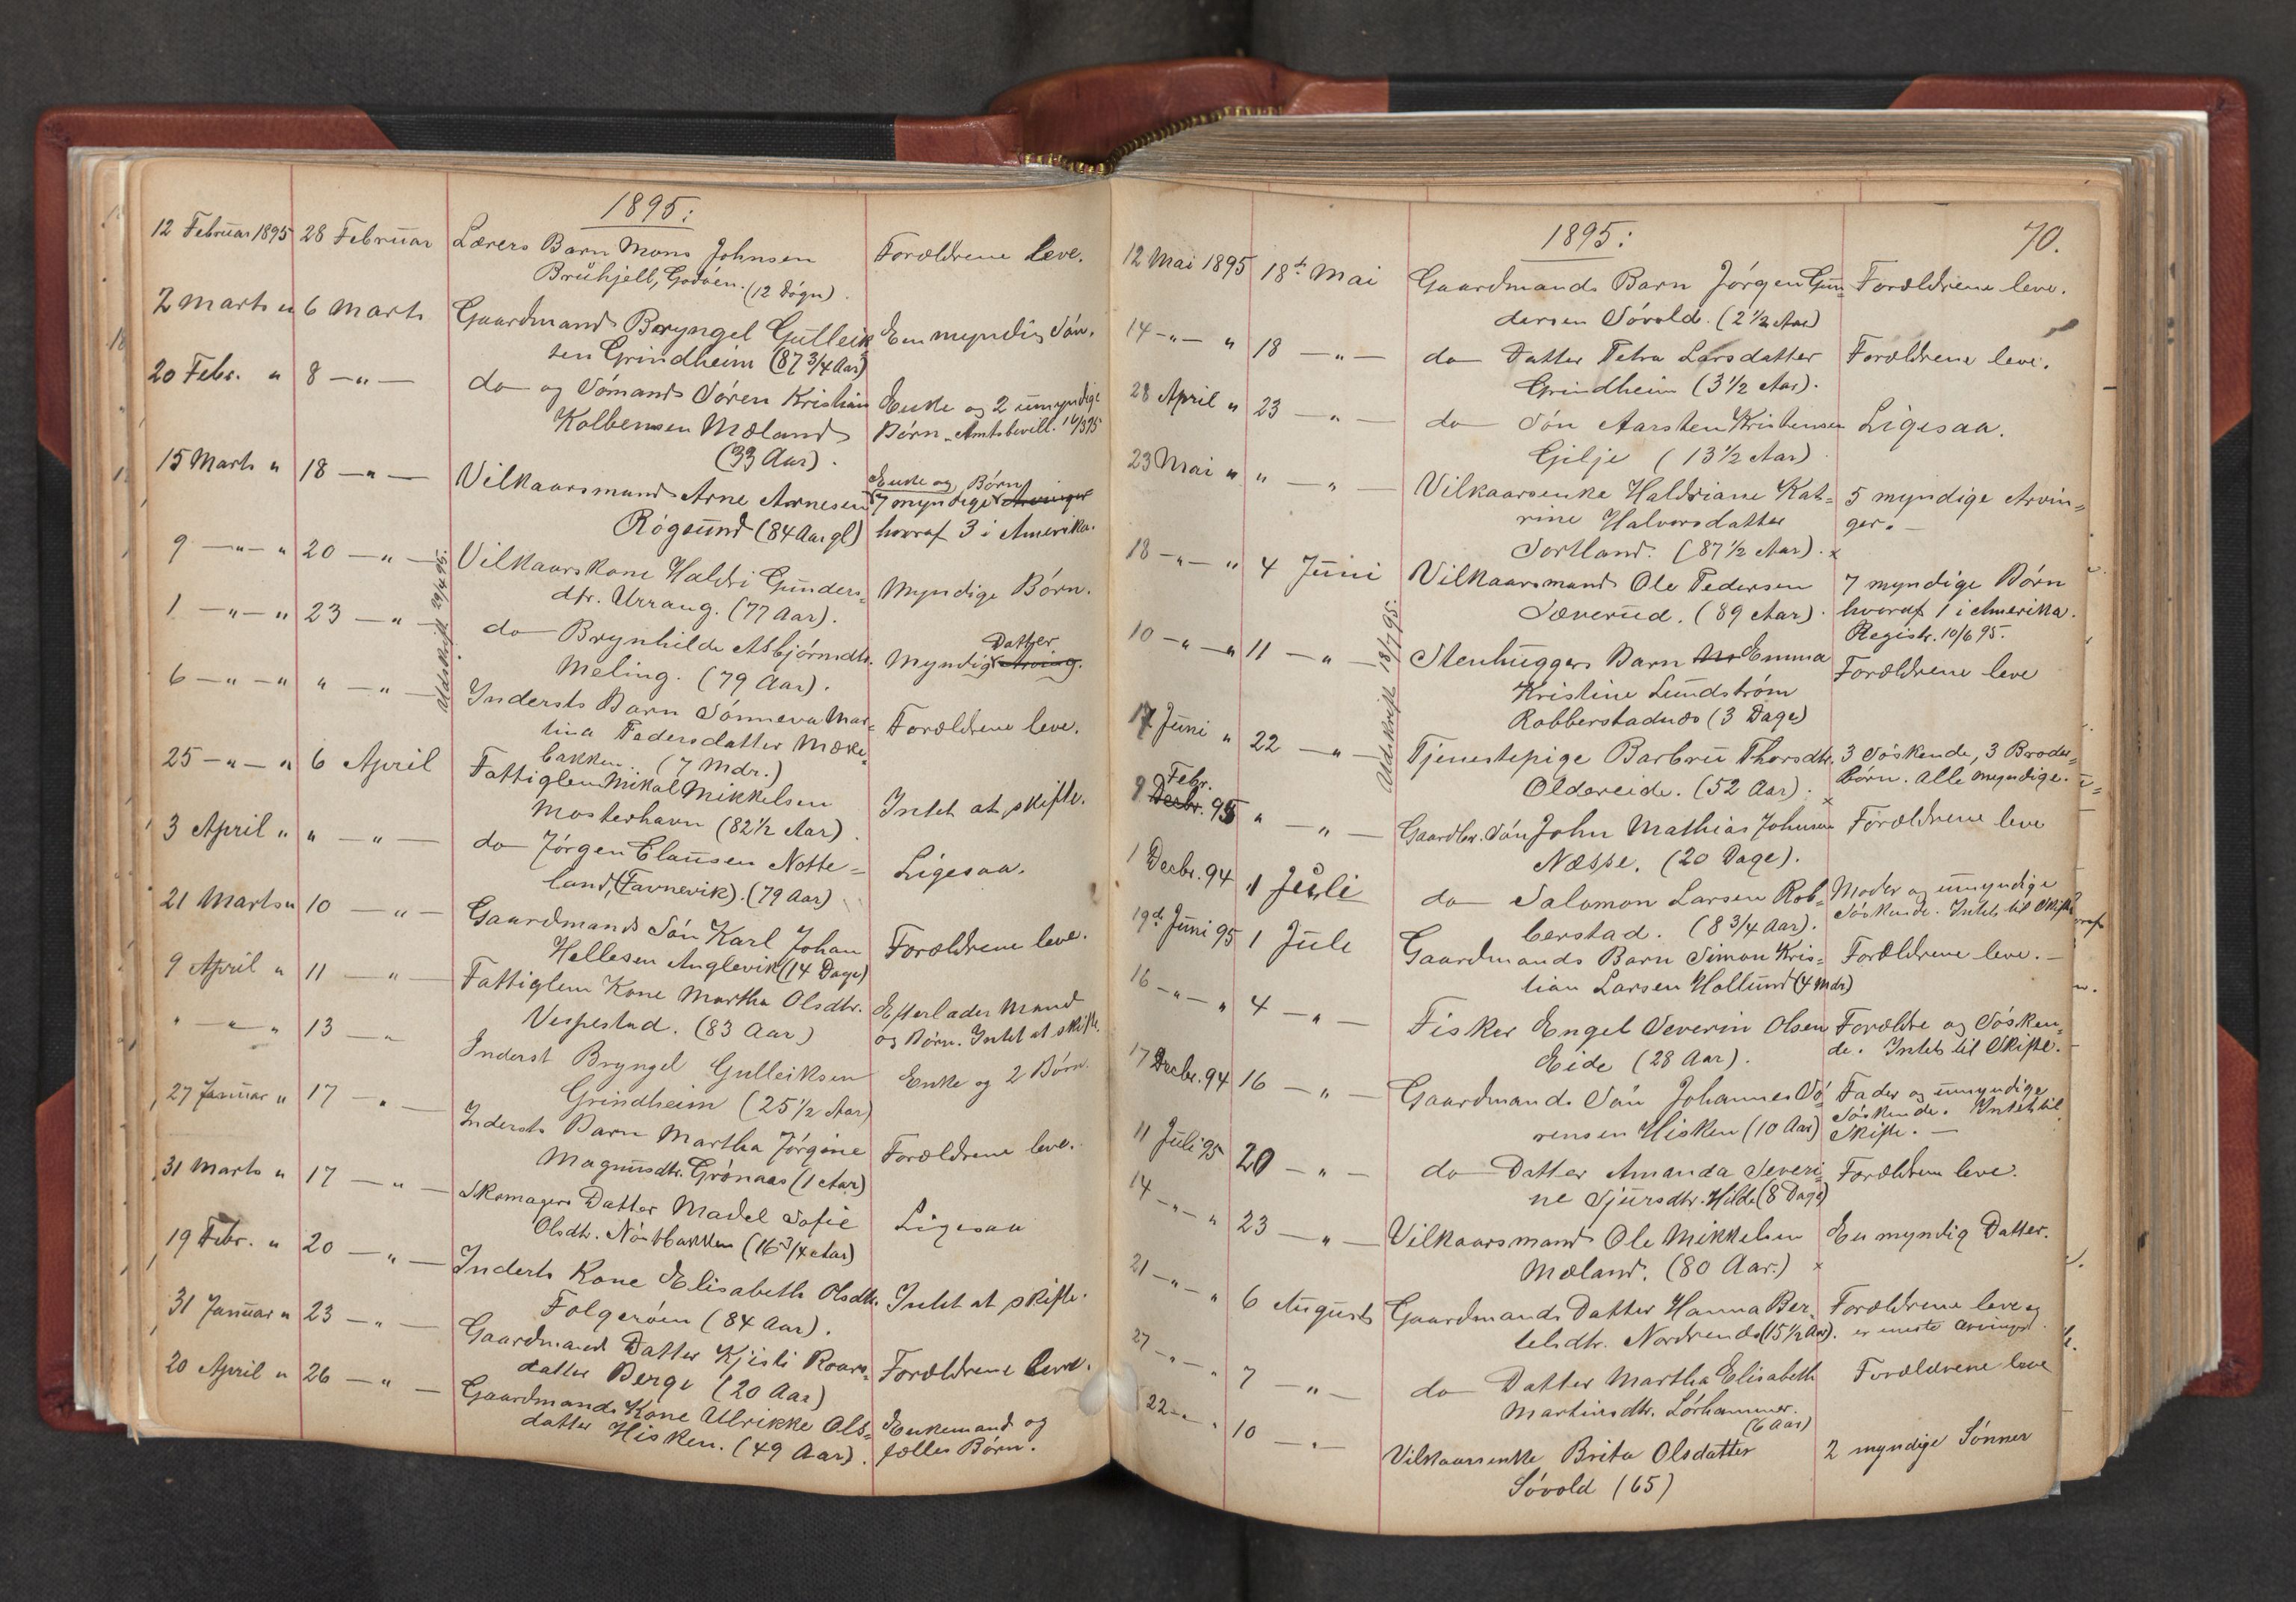 1895:
12 Februar 1895 28 Februar Lærers Barn Mons Johnsen Forældrene leve.
Bruhjell, Godøen. (12 Døgn).
2 Marts " 6 Marts Gaardmand Bryngel Gulleik En myndig Søn.
sen Grindheim (87 3/4 Aar)
20 Febr. " 8 — " — do og Sømand Søren Kristian Enke og 2 umyndige
Kolbensen Mæland Børn. Amtsbevill.
(33 Aar).
15 Marts " 18 — " — Vilkaarsmand Arne Arnesen Enke og Børn
7 myndige Arvinger
Røgsund (84 Aar gl) hvoraf 3 i Amerika.
9 — " — " 20 — " — Vilkaarskone Haldri Gunders= Myndige Børn.
dtr. Urrang. (77 Aar).
Udskrift 29/4 95.
1 — " — " 23 — " — do Brynhilde Asbjørnsdtr. Datter
Myndig Arving.
Meling. (79 Aar).
6 — " — " " — " — Indersts Barn Sønneva Mar= Forældrene leve.
tina Pedersdatter Mæke=
bakken. (7 Mdr.)
25 — " — " 6 April Fattiglem Mikal Mikkelsen Intet at skifte.
Mosterhavn (82 1/2 Aar).
3 April " " — " — do Jørgen Clausen Notte= Ligesaa.
land, (Favnevik). (79 Aar)
21 Marts " 10 — " — Gaardmands Søn Karl Johan Forældrene leve.
Hellesen Anglevik (14 Dage)
9 April " 11 — " — Fattiglem Kone Martha Olsdtr. Efterlader Mand
Vespestad. (83 Aar) og Børn. Intet at skifte.
" — " — " 13 — " Inderst Bryngel Gulleiksen Enke og 2 Børn.
Grindheim (25 1/2 Aar)
27 Januar " 17 — " — Indersts Barn Martha Jørgine Forældrene leve.
Magnusdtr. Grønaas (1 Aar)
31 Marts " 17 — " — Skomagers Datter Madel Sofie Ligesaa
Olsdtr. Nøstbakken (16 3/4 Aar)
19 Febr. " 20 — " — Indersts Kone Elisabeth Olsdtr. Intet at skifte.
Folgerøen (84 Aar).
31 Januar " 23 — " — Gaardmand Datter Kjisti Roars= Forældrene leve.
datter Berge (20 Aar)
20 April " 26 — " — Gaardmands Kone Ulrikke Ols= Enkemand og
datter Hisken. (49 Aar). fælles Børn.
1895: 70.
12 Mai 1895 18de Mai Gaardmands Barn Jørgen Gun= Forældrene leve.
dersen Søvold. (2 1/2 Aar)
14 — " — " 18 — " — do Datter Petra Larsdatter Forældrene leve.
Grindheim (3 1/2 Aar).
28 April " 23 — " — do Søn Aarsten Kristensen Ligesaa.
Gilje (13 1/2 Aar)
23 Mai " " — " — Vilkaarsenke Haldriane Kat= 5 myndige Arvin=
rine Halvorsdatter ger. —
Sortland. (87 1/2 Aar). x
18 — " — " 4 Juni Vilkaarsmand Ole Pedersen 7 myndige Børn
Sæverud. (89 Aar). hvoraf 1 i Amerika.
Registr. 10/6 95.
Udskrift 13/7 95.
10 — " — " 11 — " — Stenhuggers Barn Emma Forældrene leve
Kristine Lundström
Robberstadnæs (3 Dage)
17 Juni " 22 — " — Tjenestepige Barbru Thorsdtr. 3 Søskende, 3 Broder=
Oldereide. (52 Aar). x børn. Alle myndige.
Febr.
9 Decbr. 95 " — " — Gaardbr. Søn John Mathias Johnsen Forældrene leve
Næsse. (20 Dage).
1 Decbr. 94 1 Juli do Salomon Larsen Rob= Moder og umyndige
berstad. (8 3/4 Aar). Søskende. Intet til Skifte
19de Juni 95 1 Juli Gaardmands Barn Simon Kris= Forældrene leve. —
tian Larsen Hollund (4 Mdr)
16 — " — " 4 — " — Fisker Engel Severin Olsen Forældre og Sösken=
Eide (28 Aar). de. Intet til Skifte.
17 Decbr. 94 16 — " — Gaardmands Søn Johannes Sø= Fader og umyndige
rensen Hisken (10 Aar) Söskende. Intet til
Skifte. —
11 Juli 95 20 — " — do Datter Amanda Severi Forældrene leve.
ne Sjursdtr. Hilde (8 Dage)
14 — " — " 23 — " — Vilkaarsmand Ole Mikkelsen En myndig Datter.
Mæland. (80 Aar.) x
21 — " — " 6 August Gaardmands Datter Hanna Ber= Forældrene leve og
telsdtr. Nordrend (15 1/2 Aar). er eneste Arvinger.
27 — " — " 7 — " — do Datter Martha Elisabeth Forældrene leve
Martinsdtr. Lørhammer.
(6 Aar)
22 — " — " 10 — " — Vilkaarsenke Brita Olsdatter 2 myndige Sønner
Søvold (65)